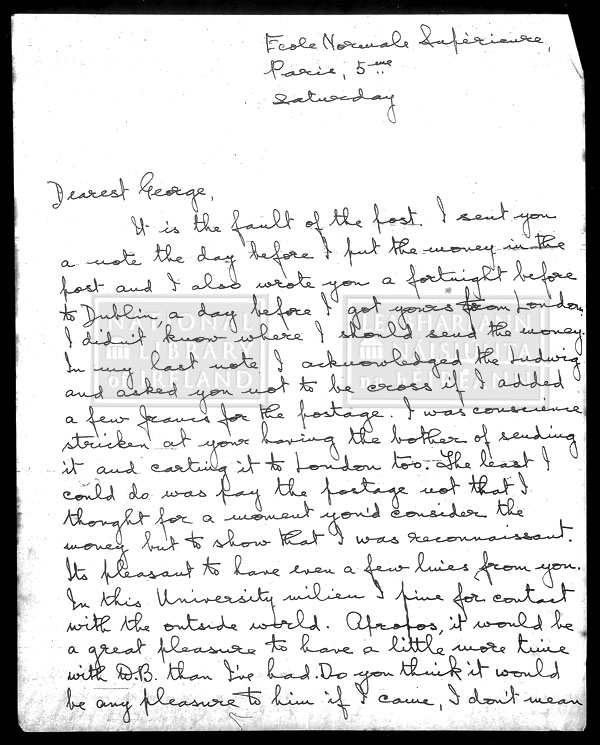 Ecole Normale Supérieure,
Paris, 5me
Saturday
Dearest George,
It is the fault of the post. I sent you
a note the day before I put the money in the
post and I also wrote you a fortnight before
to Dublin, a day before I got yours from London.
I didn't know where I should send the money.
In my last note I acknowledged the Ludwig
and asked you not to be cross if I added
a few francs for the postage. I was conscience
stricken at your having the bother of sending
it and carting it to London too. The least I
could do was pay the postage not that I
thought for a moment you'd consider the
money but to show that I was reconnaissant.
Its pleasant to have even a few lines from you.
In this University milieu I pine for contact
with the outside world. Apropos, it would be
a great pleasure to have a little more time
with D.B. than I've had. Do you think it would
be any pleasure to him if I came, I don't mean
NATIONAL
LIBRARY
of IRELAND
LEABHARLANN
NÁISIÚNTA
na hÉIREANN